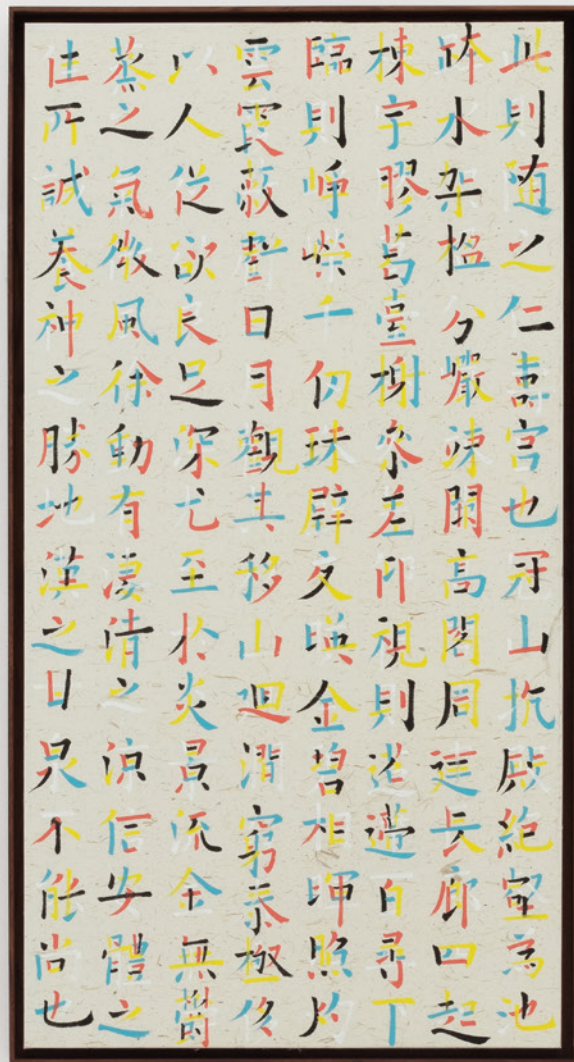 此則随之仁壽宮也冠山抗殿絶壑為池
跨水架楹分巖竦闕高閣周建長廊四起
棟宇膠葛臺榭參差仰視則迢遰百尋下
臨則崢嶸千仞珠璧交暎金碧相暉照灼
雲霞蔽虧日月觀其移山迴澗窮泰極侈
以人從欲良足深尤至於炎景流金無鬱
蒸之氣微風徐動有淒清之涼信安體之
佳所誠養神之勝地漢之甘泉不能尚也